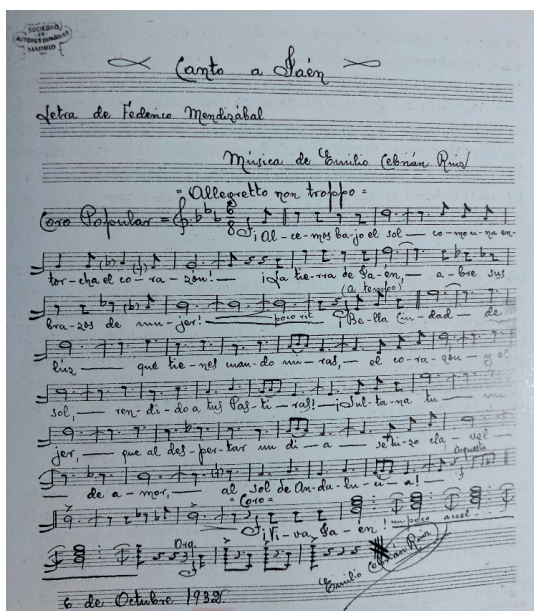 SOCIEDAD
DE
AUTORES ESPAÑOLES
MADRID
Canto a Jaén
Letra de Federico Mendizábal
Música de Emilio Cebrián Ruiz
= Allegretto non troppo =
Coro Popular =
¡Al-ce-mos ba-jo el sol — co-mo u-na en-
tor-cha el co-ra-zón! — ¡La tie-rra de Ja-én, — a-bre sus
(a tempo)
bra-zos de mu-jer! poco rit ¡Be-lla Ciu-dad — de
luz — que tie-nes cuan-do mi-ras, — el co-ra-zón — y el
sol, — ren-di-do a tus Pas-ti-ras! — ¡Sul-ta-na tu — mu
jer, — que al des-per-tar un di-a — se hi-zo cla-vel
Orquesta
— de a-mor, — al sol de An-da-lu-cí-a! —
= Coro =
¡Vi-va Ja-én! un poco accel.
Orq.
Emilio Cebrián Ruiz
6 de Octubre 1932